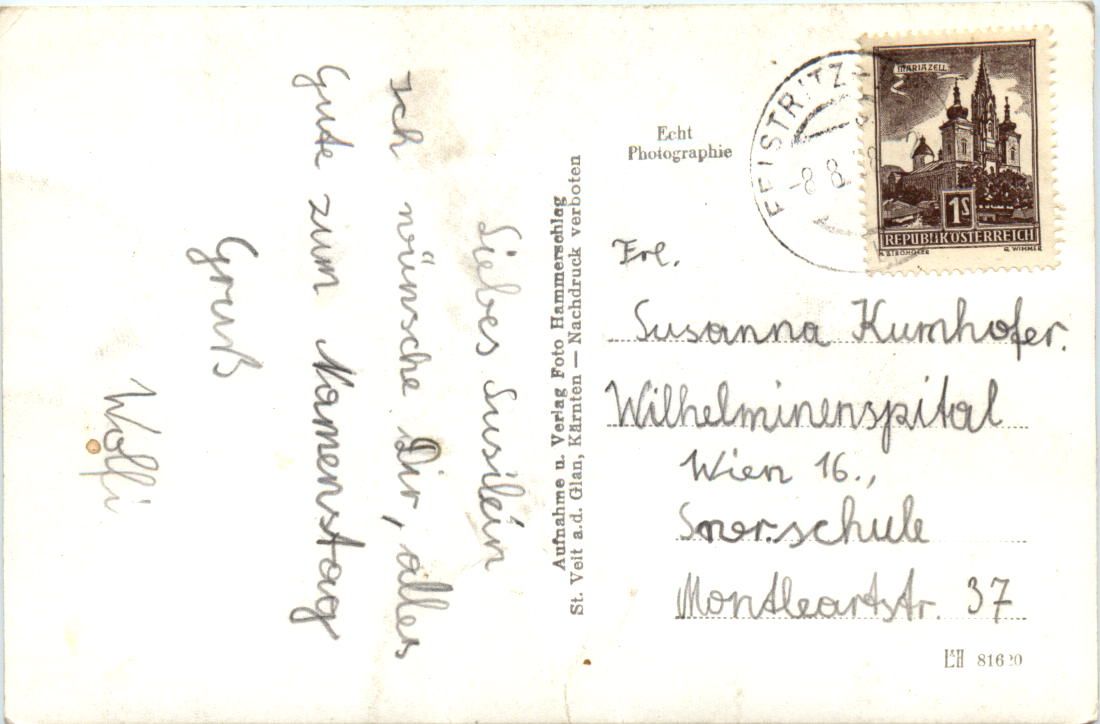 Liebes Susilein
Ich wünsche Dir, alles
Gute zum Namenstag
Gruß
Wolfi
Aufnahme u. Verlag Foto Hammerschlag
St. Veit a.d. Glan, Kärnten — Nachdruck verboten
Echt
Photographie
FEISTRITZ
-8. 8.
MARIAZELL
1S
REPUBLIK ÖSTERREICH
Frl.
Susanna Kumhofer.
Wilhelminenspital
Wien 16.,
Snerschule
Montleartstr. 37
81620